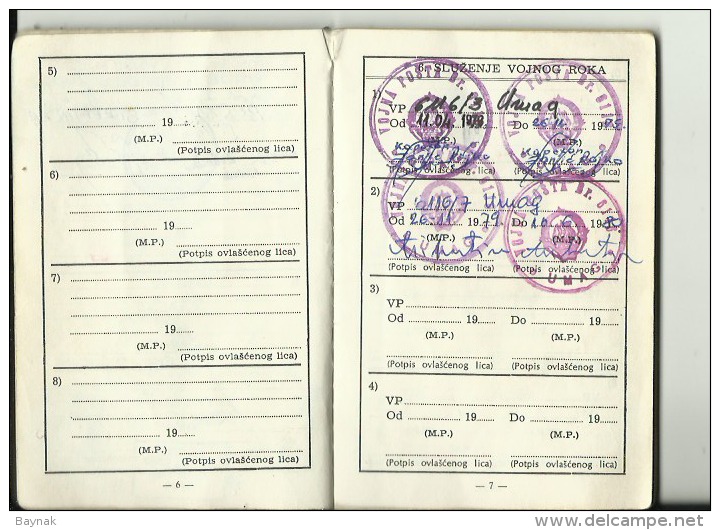 5)
19
(M.P.)
(Potpis ovlašćenog lica)
6)
19
(M.P.)
(Potpis ovlašćenog lica)
7)
19
(M.P.)
(Potpis ovlašćenog lica)
8)
19
(M.P.)
(Potpis ovlašćenog lica)
— 6 —
6. SLUŽENJE VOJNOG ROKA
VOJNA POŠTA BR.
1)
VP 6116/3 Umag
Od 11.04. 19 Do 26.11. 19
(M.P.)
(Potpis ovlašćenog lica) (Potpis ovlašćenog lica)
2)
VP 6116/7 Umag
VOJNA POŠTA BR.
Od 26-11 1979. Do 10.6. 19
(M.P.) (M.P.)
UMAG
(Potpis ovlašćenog lica) (Potpis ovlašćenog lica)
3)
VP
Od 19 Do 19
(M.P.) (M.P.)
(Potpis ovlašćenog lica) (Potpis ovlašćenog lica)
4)
VP
Od 19 Do 19
(M.P.) (M.P.)
(Potpis ovlašćenog lica) (Potpis ovlašćenog lica)
— 7 —
Baynak
www.delcampe.net